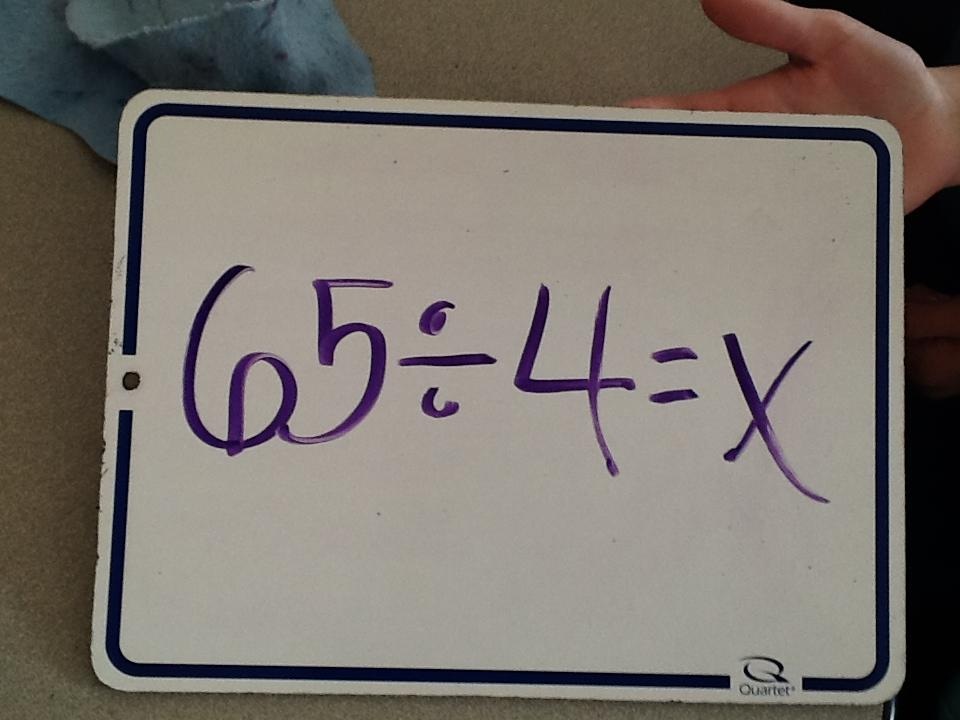 65÷4=x
Quartet®